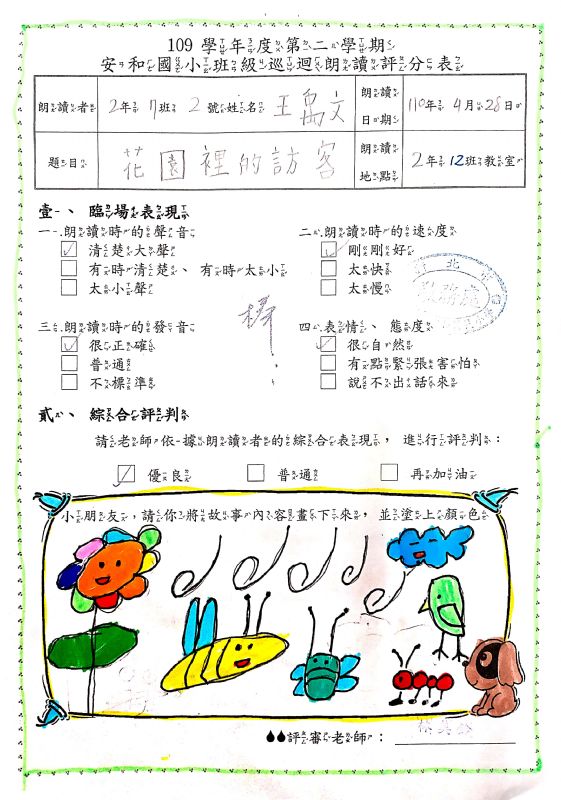 109 學年度第二學期
安和國小班級巡迴朗讀評分表
朗讀者 2年 7班 2 號姓名 王禹文 朗讀日期 110年 4月 28日
題目 花園裡的訪客 朗讀地點 2年 12班教室
壹、臨場表現
一.朗讀時的聲音
清楚大聲
有時清楚、有時太小
太小聲
二.朗讀時的速度
剛剛好
太快
太慢
三.朗讀時的發音
很正確
普通
不標準
棒!
四.表情、態度
很自然
有點緊張害怕
說不出話來
貳、綜合評判
請老師依據朗讀者的綜合表現,進行評判:
優良 普通 再加油
小朋友,請你將故事內容畫下來,並塗上顏色
評審老師: